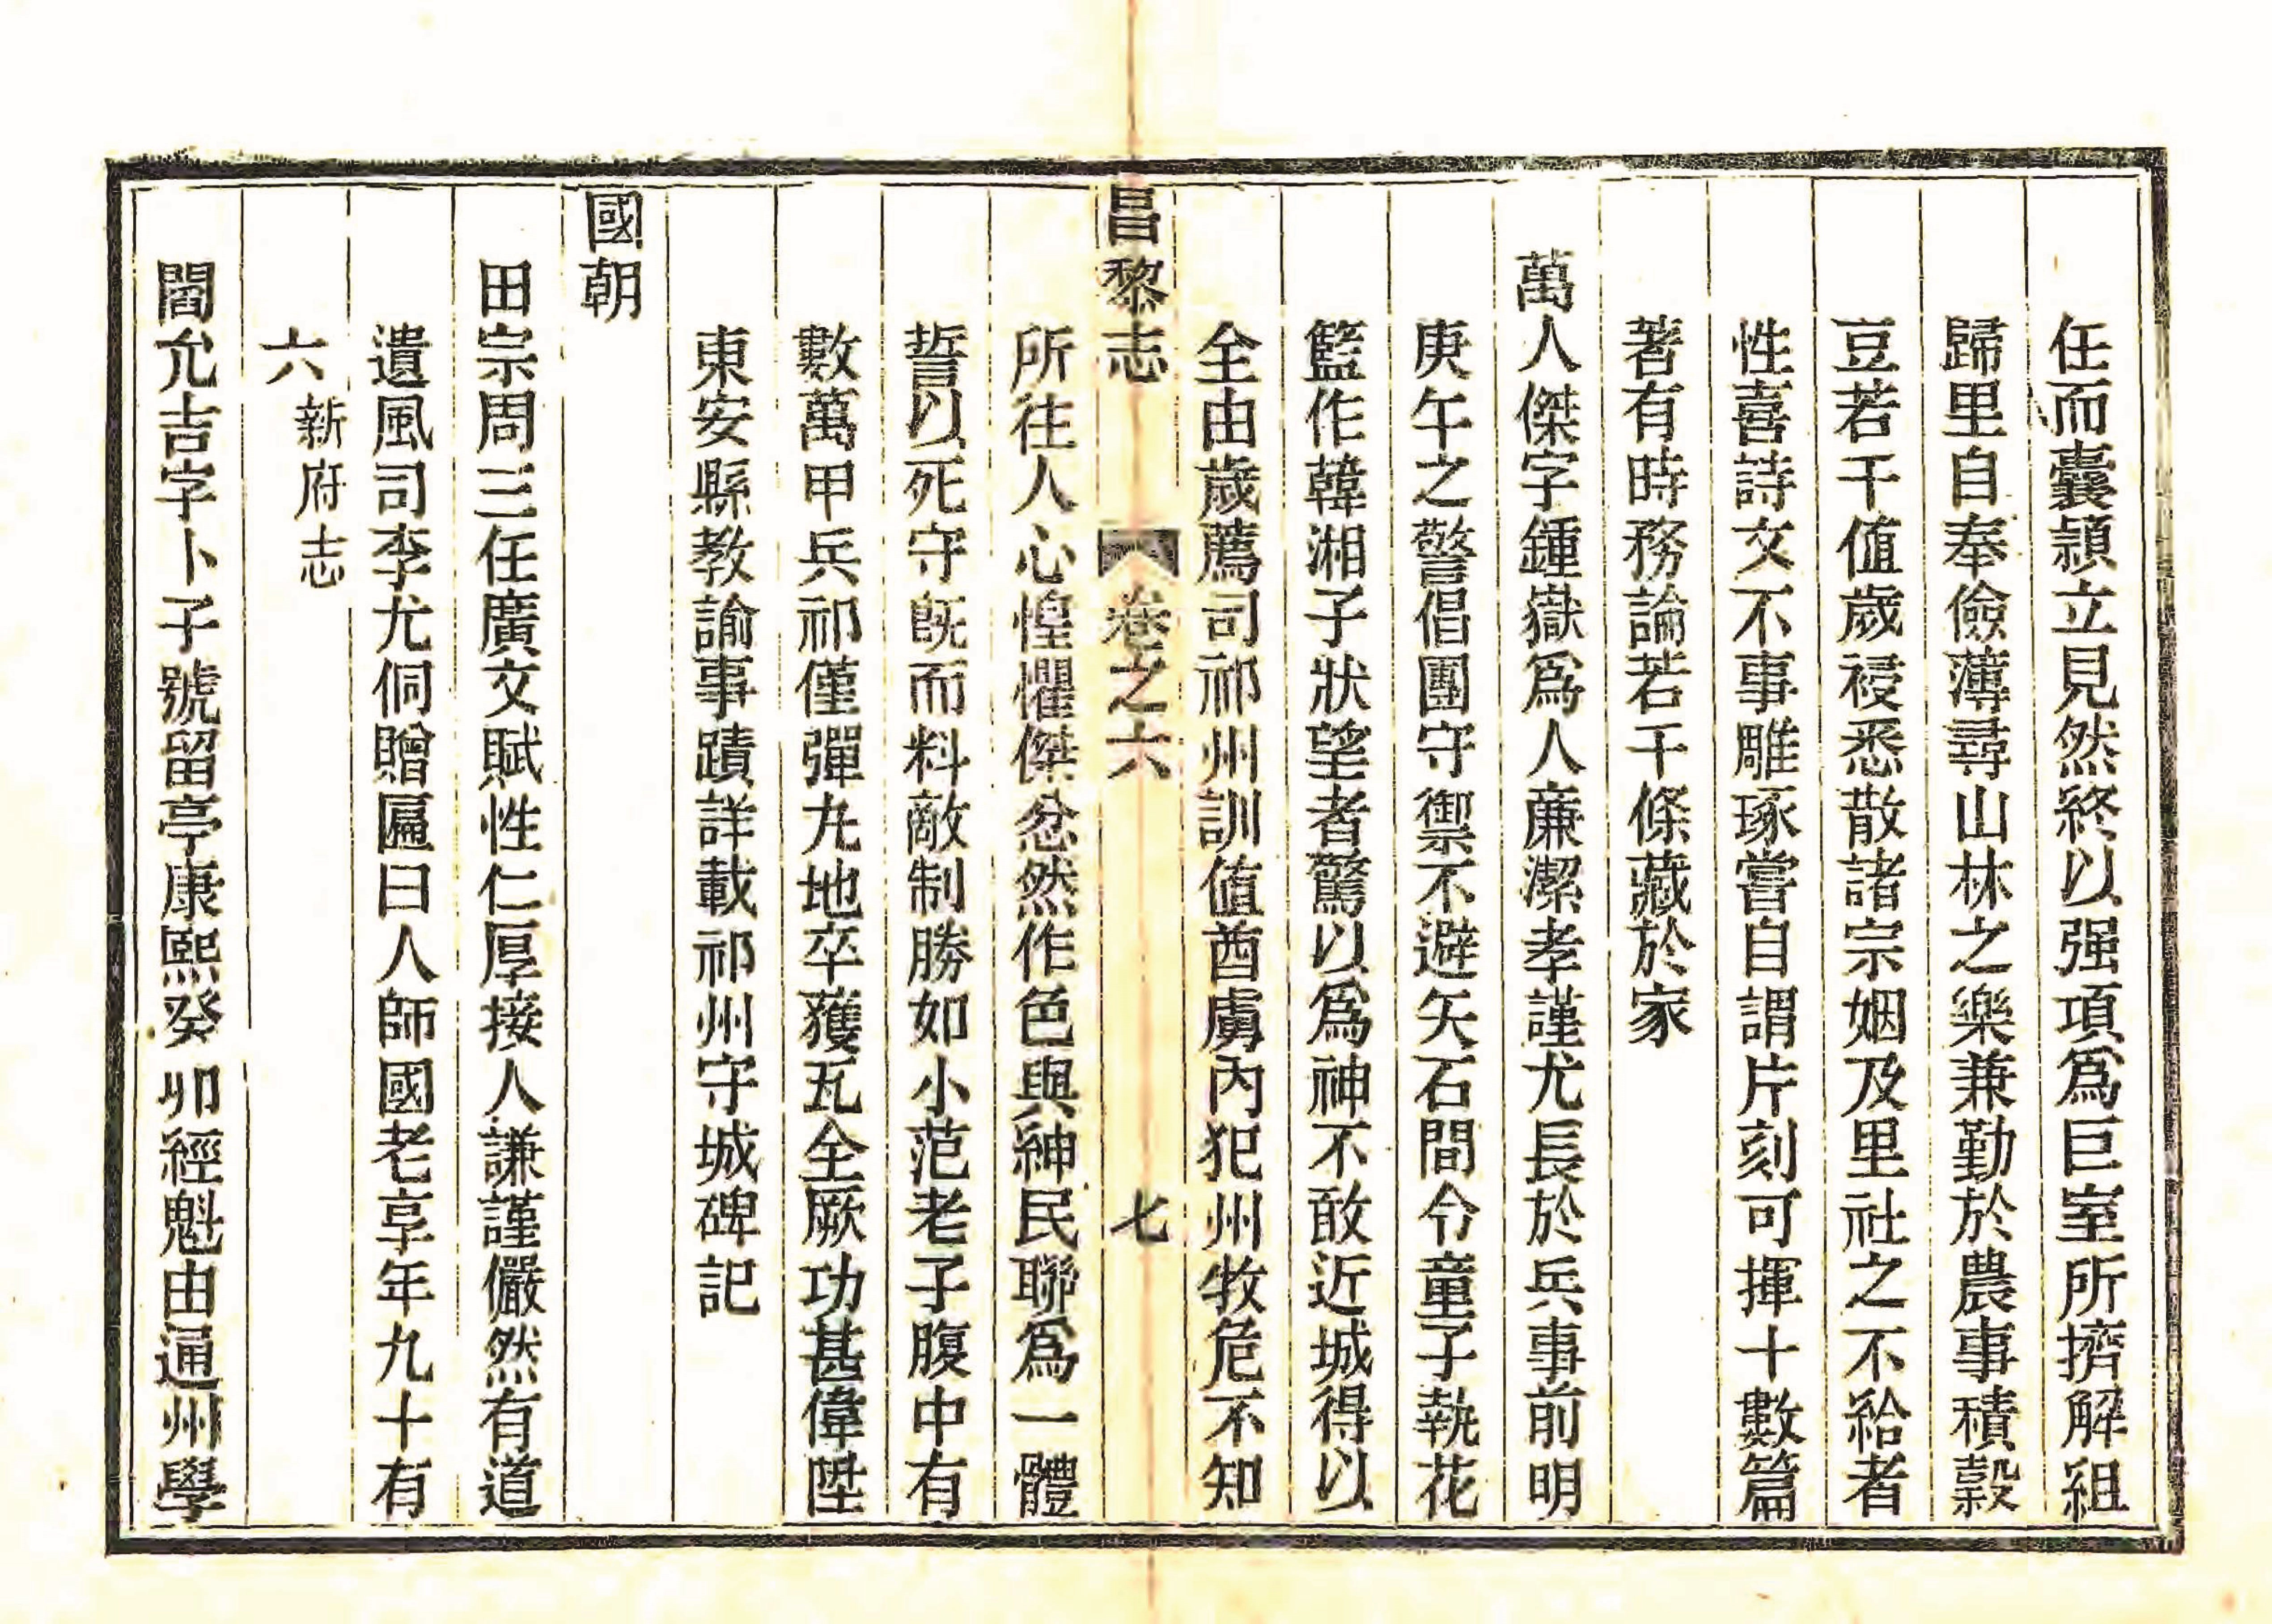 任而囊頴立見然終以强項爲巨室所擠解組
歸里自奉儉薄尋山林之樂兼勤於農事積穀
豆若干値歲祲悉散諸宗姻及里社之不給者
性喜詩文不事雕琢嘗自謂片刻可揮十數篇
著有時務論若干條藏於家
萬人傑字鍾嶽爲人廉潔孝謹尤長於兵事前明
庚午之警倡團守禦不避矢石間令童子執花
籃作韓湘子狀望者驚以爲神不敢近城得以
全由歲薦司祁州訓値酋虜內犯州牧危不知
昌黎志 卷之六 七
所往人心惶懼傑忿然作色與紳民聯爲一體
誓以死守旣而料敵制勝如小范老子腹中有
數萬甲兵祁僅彈丸地卒獲瓦全厥功甚偉陞
東安縣教諭事蹟詳載祁州守城碑記
國朝
田宗周三任廣文賦性仁厚接人謙謹儼然有道
遺風司李尤侗贈匾曰人師國老享年九十有
六 新府志
閻允吉字卜子號留亭康熙癸卯經魁由通州學